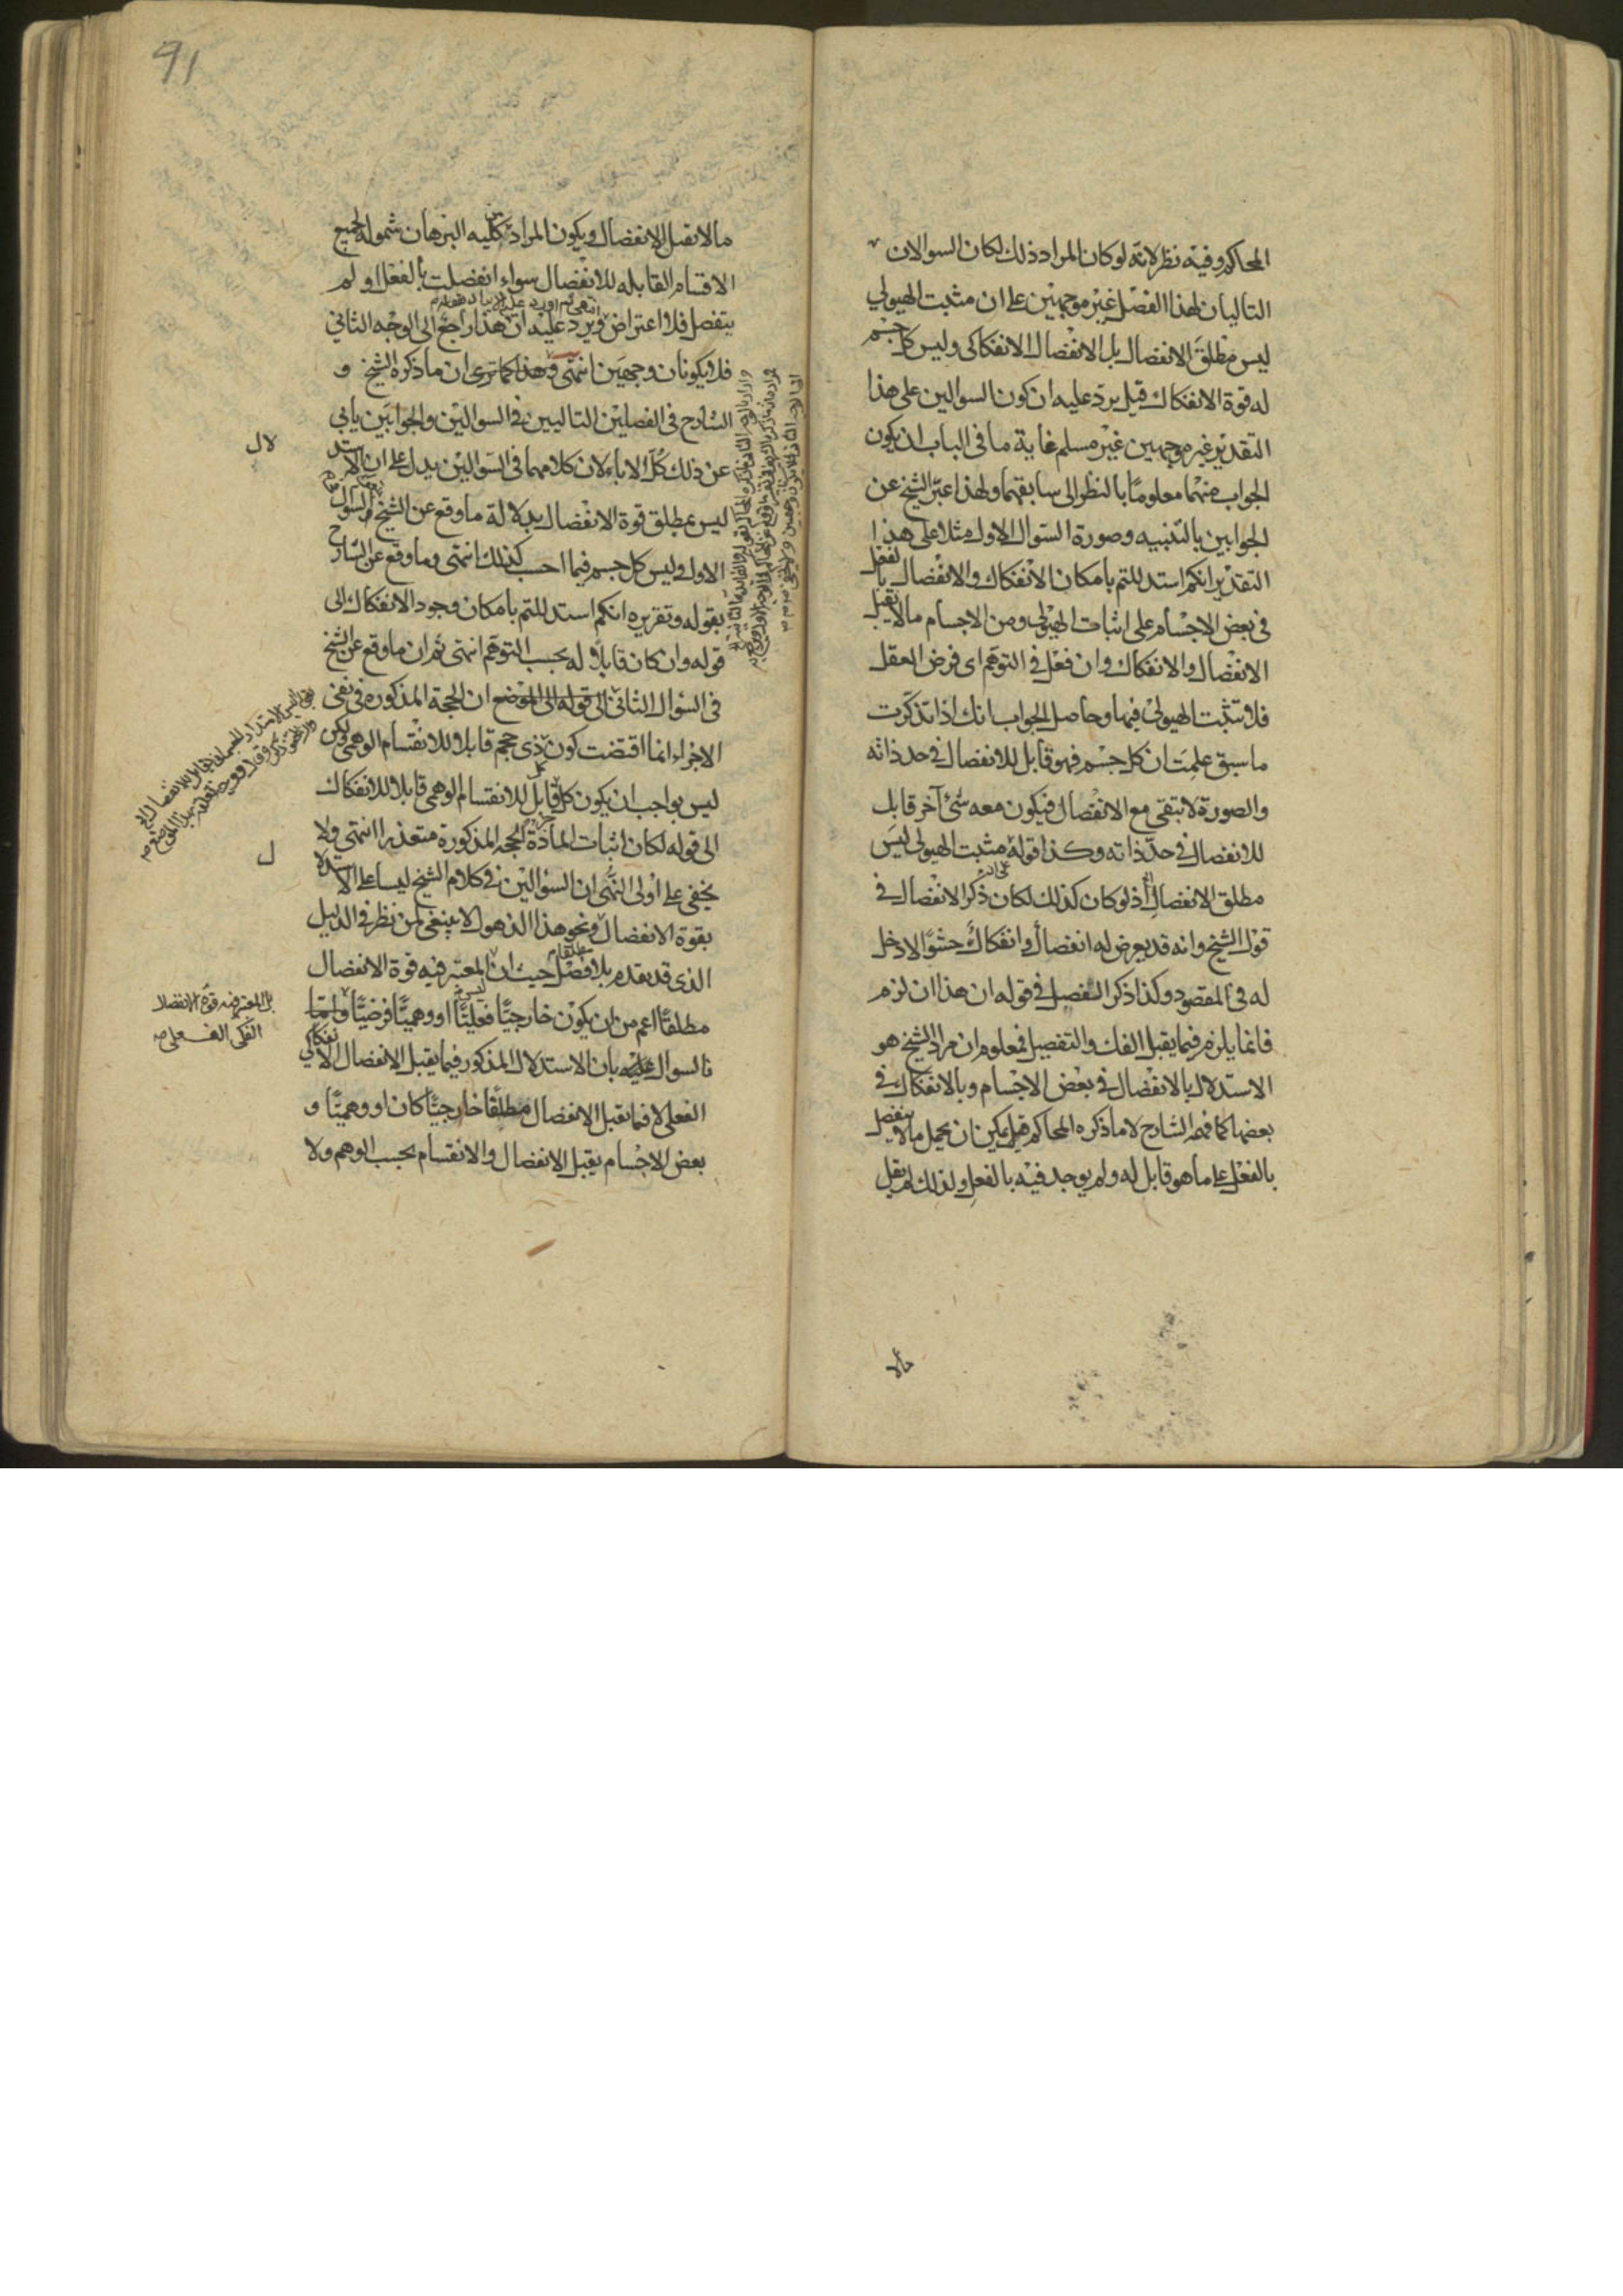 المحاكم وفيه نظر لانه لو كان المراد ذلك لكان السوالان
التاليان لهذا الفصل غير موجهين على ان مثبت الهيولي
ليس مطلق الانفصال بل الانفصال الانفكاكى وليس كل جسم
له قوة الانفكاك قيل يرد عليه ان كون السوالين على هذا
التقدير غير موجهين غير مسلم غاية ما فى الباب ان يكون
الجواب عنهما معلومًا بالنظر الى سابقهما ولهذا عبّر الشيخ عن
الجوابين بالتنبيه وصورة السوال الاول مثلا على هذا
التقدير انكم استدللتم بامكان الانفكاك والانفصال بالفعل
فى بعض الاجسام على اثبات الهيولى ومن الاجسام مالا يقبل
الانفصال والانفكاك وان فعل فى التوهم اى فرض العقل
فلا تثبت الهيولى فيها وحاصل الجواب انك اذا تذكرت
ما سبق علمت ان كل جسم فهو قابل للانفصال فى حد ذاته
والصورة لا تبقى مع الانفصال فيكون معه شئ آخر قابل
للانفصال فى حدّ ذاته وكذا قوله مثبت الهيولى ليس
مطلق الانفصال اذ لو كان كذلك لكان ذكر الانفصال فى
قول الشيخ وانه قد يعرض له انفصال وانفكاك حشوًا لا دخل
له فى المقصود وكذا ذكر التفصيل فى قوله ان هذا ان لزم
فانما يلزم فيما يقبل الفك والتفصيل فمعلوم ان مراد الشيخ هو
الاستدلال بالانفصال فى بعض الاجسام وبالانفكاك فى
بعضها كما فهمه الشارح لا ما ذكره المحاكم قيل يمكن ان يحمل مالا ينفصل
بالفعل على ما هو قابل له ولم يوجد فيه بالفعل ولذلك لم يقل
مالا
91
مالا تقبل الانفصال ويكون المراد كليه البرهان شموله لجميع
الاقسام القابله للانفصال سواء انفصلت بالفعل او لم
ينفصل فلا اعتراض ويرد عليه ان هذا راجع الى الوجه الثاني
فلا يكونان وجهين انتهى وهذا كما ترى ان ما ذكره الشيخ و
الشارح فى الفصلين التاليين فى السوالين والجوابين يابى
عن ذلك كل الاباء لان كلامهما فى السوالين يدل على ان الاستد
لال
ليس بمطلق قوة الانفصال بدلالة ما وقع عن الشيخ فى السوال
الاول وليس كل جسم فيما احسب كذلك انتهى وما وقع عن الشارح
بقوله وتقريره انكم استدللتم بامكان وجود الانفكاك الى
قوله وان كان قابلا له بحسب التوهم انتهى ثم ان ما وقع عن الشيخ
فى السؤال الثانى الى قوله الى الموضع ان الحجة المذكورة فى نفى
الاجزاء انما اقتضت كون ذى حجم قابلا للانقسام الوهمى ولكن
ليس بواجب ان يكون كل قابل للانقسام الوهمى قابلا للانفكاك
الى قوله لكان اثبات المادة بالحجة المذكورة متعذرا انتهى ولا
يخفى على اولى النهى ان السؤالين فى كلام الشيخ ليسا على الاستدلا
ل
بقوة الانفصال ونحو هذا الذهول لا ينبغى لمن نظر فى الدليل
الذى قد تقدم بلا فصل حيث ان المعتبر فيه قوة الانفصال
مطلقًا اعم من ان يكون خارجيًّا فعليًّا او وهميًّا فرضيًّا وانما
بل المعتبر فيه قوة الانفصال
الفكى الفعلى صح
نا السوال عليه بان الاستدلال المذكور فيما يقبل الانفصال الانفكاكى
الفعلى لا فيما تقبل الانفصال مطلقًا خارجيًّا كان او وهميًّا و
بعض الاجسام يقبل الانفصال والانقسام بحسب الوهم ولا